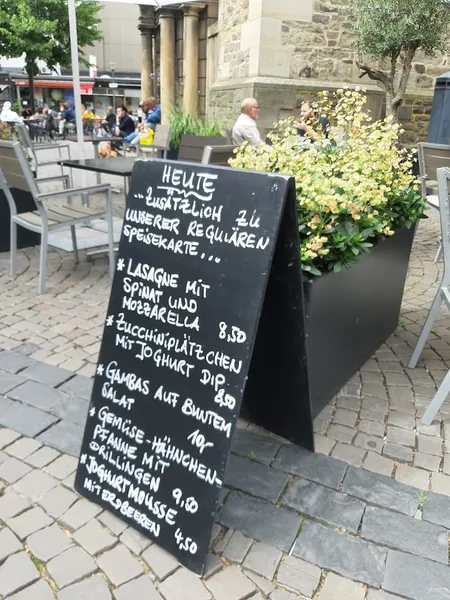 HEUTE
...ZUSÄTZLICH ZU
UNSERER REGULÄREN
SPEISEKARTE...
* LASAGNE MIT
SPINAT UND
MOZZARELLA 8,50
* ZUCCHINIPLÄTZCHEN
MIT JOGHURT DIP
8,50
* GAMBAS AUF BUNTEM
SALAT 10,-
* GEMÜSE-HÄHNCHEN-
PFANNE MIT
DRILLINGEN 9,50
* JOGHURTMOUSSE
MIT ERDBEEREN 4,50